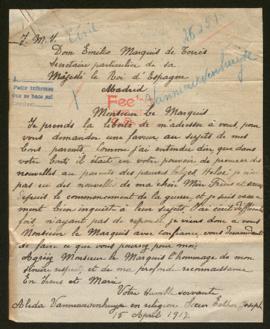 J. M. J.
26251
Dom Emilio Marquis de Torrès
Secrétaire particulier de sa
Majesté le Roi d'Espagne
Madrid
Pedir informes
Fee
Monsieur Le Marquis
Je prends la liberté de m'adresser à vous pour
vous demander une faveur au sujet de mes
bons parents, comme j'ai entendu dire que dans
votre bonté il était en votre pouvoir de procurer des
nouvelles au parents des pauvres belges Helas je n'ai
pas eu des nouvelles de ma chère
depuis le commencement de la guerre, et je suis
ment bien inquiète à leur sujet
n'ayant pas de je viens donc a vous
Monsieur le Marquis avec confiance, vous demandant
de faire ce que vous pourrez pour moi,
Agréez Monsieur le Marquis l'hommage de mon
respect, et de ma profonde reconnaissance
En Jesus et Marie
Votre humble servante
en religion Sœur Joseph
15 April 1917